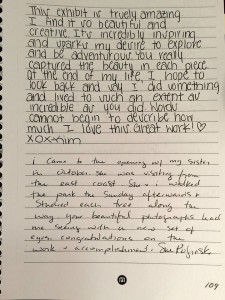 This exhibit is truely amazing.
I find it so beautiful and
creative. Its incredibly inspiring
and sparks my desire to explore
and be adventurous. You really
captured the beauty in each piece.
At the end of my life, I hope to
look back and say I did something
and lived to such an extent as
incredible as you did. Words
cannot begin to describe how
much I love this great work! ♡
XOXO Kim
i came to the opening w/ my sister
in October. She was visiting from
the east coast. She & i walked
the park the Sunday afterwards &
studied each tree along the
way. Your beautiful photographs had
me seeing with a new set of
eyes. Congratulations on the
work & accomplishment. Sue
109